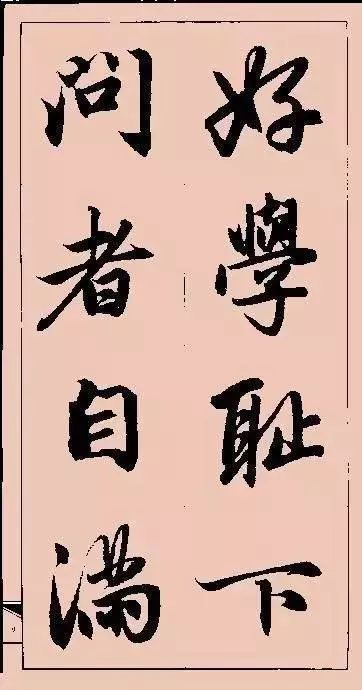 好學耻下
問者自滿